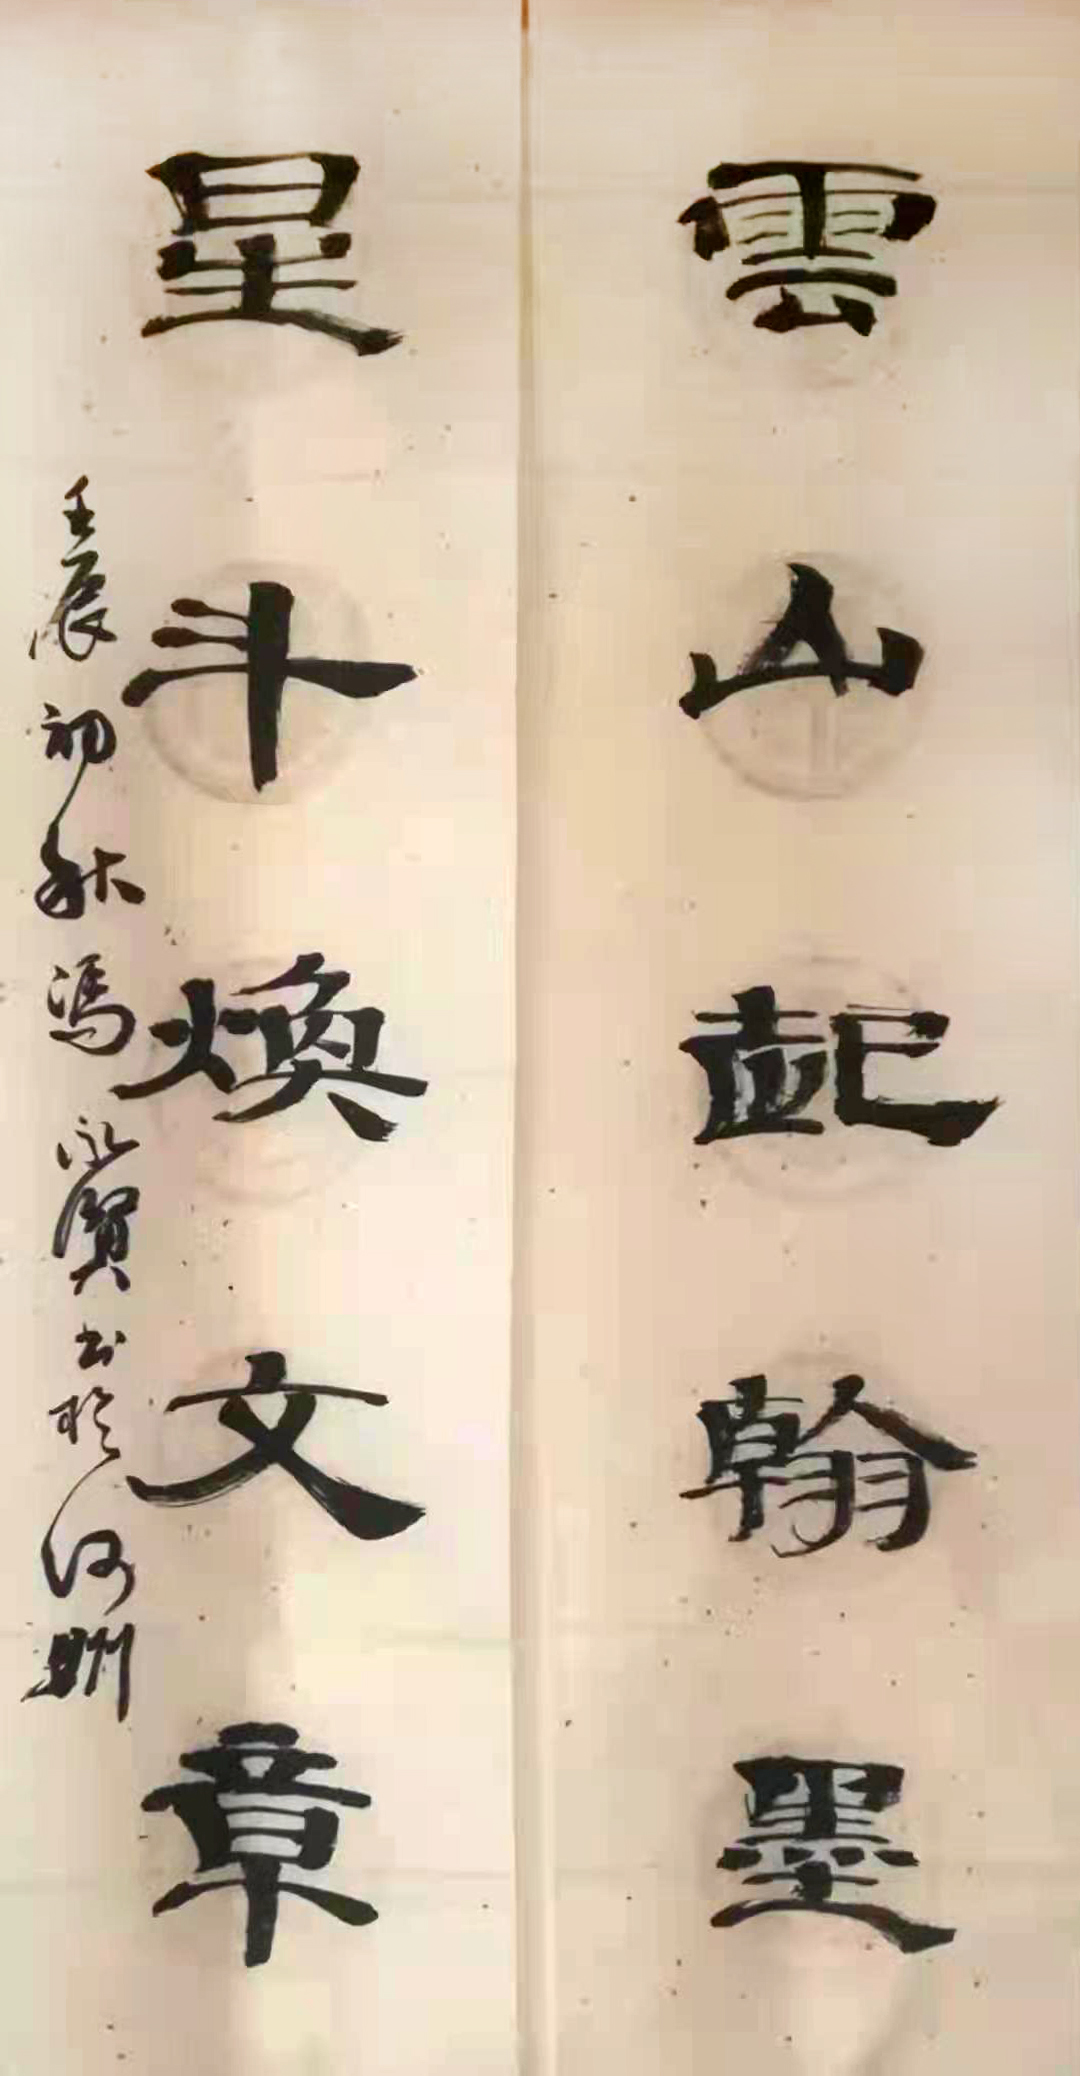 雲山起翰墨
星斗煥文章
壬辰初秋馮永賢書於河洲